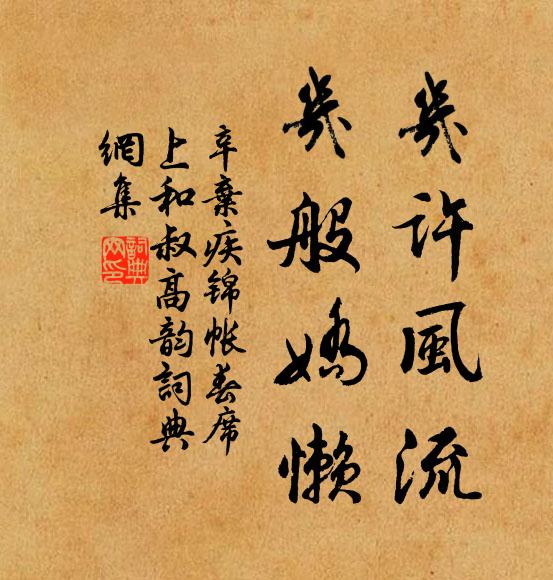 幾許風流
幾般嬌懶
辛棄疾錦帳春席
上和叔高韵詞典
網集
詞典
网印